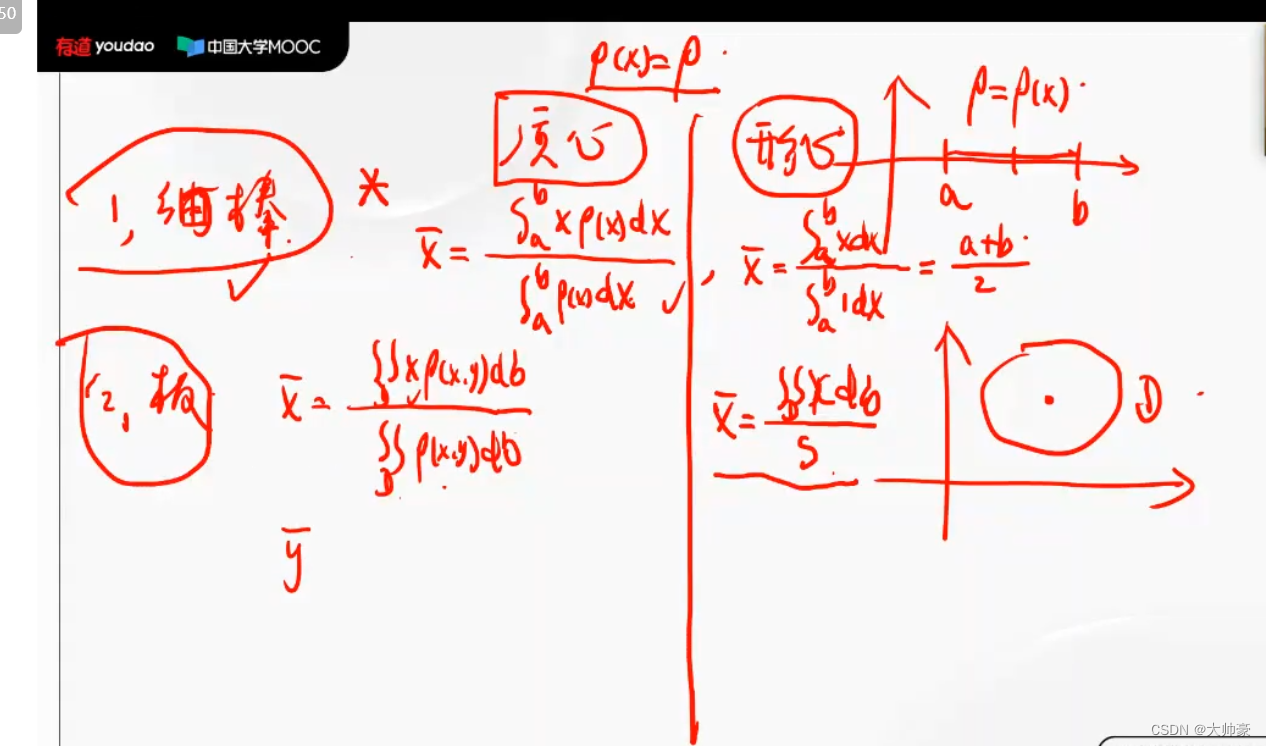 50
有道 youdao 中国大学MOOC
ρ(x)=ρ
质心
形心
ρ=ρ(x)
a
b
1, 细棒 *
x̄ = ∫_a^b xρ(x)dx / ∫_a^b ρ(x)dx ✓,
x̄ = ∫_a^b xdx / ∫_a^b 1dx = (a+b)/2
2, 板
x̄ = ∬_D xρ(x,y)dσ / ∬_D ρ(x,y)dσ
x̄ = ∬_D xdσ / S
D
ȳ
CSDN @大帅豪